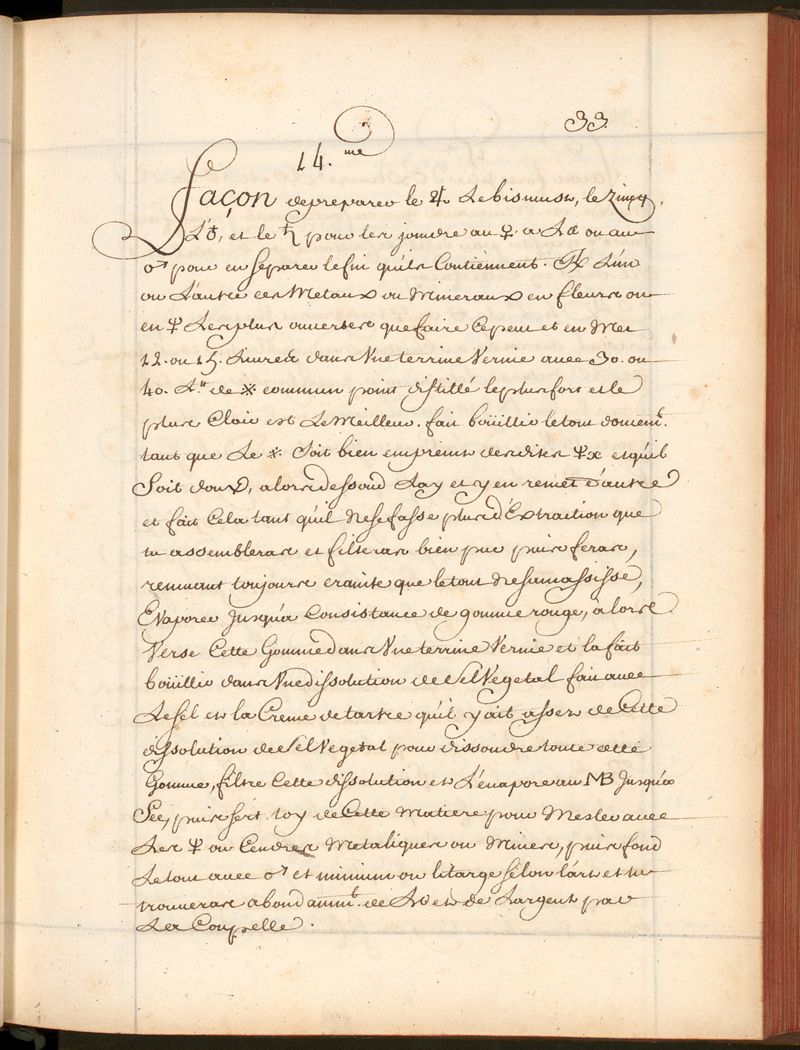 33
14.me
façon de preparer le ♃ Le bismuth, le Zingq,
L'♁, et le ♄ pour les joindre au ♀. a La ou au
♂ pour en separer le fin qu'ils Contiennent. ℞ L'un
ou L'autre des Metaux ou Mineraux en fleurs ou
en 🜍 Les plus ouvertes que faire Ce peut et en Met
12. ou 15. Livres dans Vne terrine Vernie avec 30. ou
40. L.tt de ※ commun point distillé le plus fort et le
plus Clair est Le Meilleur. fait boüillir le tout doucem.t
tant que Le ※. Soit bien empreint desdites et qu'il
Soit doux, alors dessend Lay et y en remet d'autre
et fait Cela tant qu'il Ne se fasse plus d'Extraction que
tu assembleras et filtreras bien pur puis feras,
remuant toujours crainte que le tout Ne s'amassisse,
Evaporer Jusqu'a Consistance de gomme rouge, alors
Verse Cette Gomme dans Vne terrine Vernie et la fait
boüillir dans Vne dissolution de Sel Vegetal fait avec
Le Sel et la Creme de tartre qu'il y ait assez de Cette
dissolution de Sel Vegetal pour dissoudre toute cette
Gomme, filtre Cette dissolution et L'evapore au MB Jusqu'a
Sec, puis sert toy de Cette Matiere pour Mesler avec
Les ou Cendres Metaliques ou Mines, puis fond
Le tout avec ♂ et minium ou litarge selon l'art et tu
trouveras abondamm.t de L'or et de L'argent par
La Coupelle.